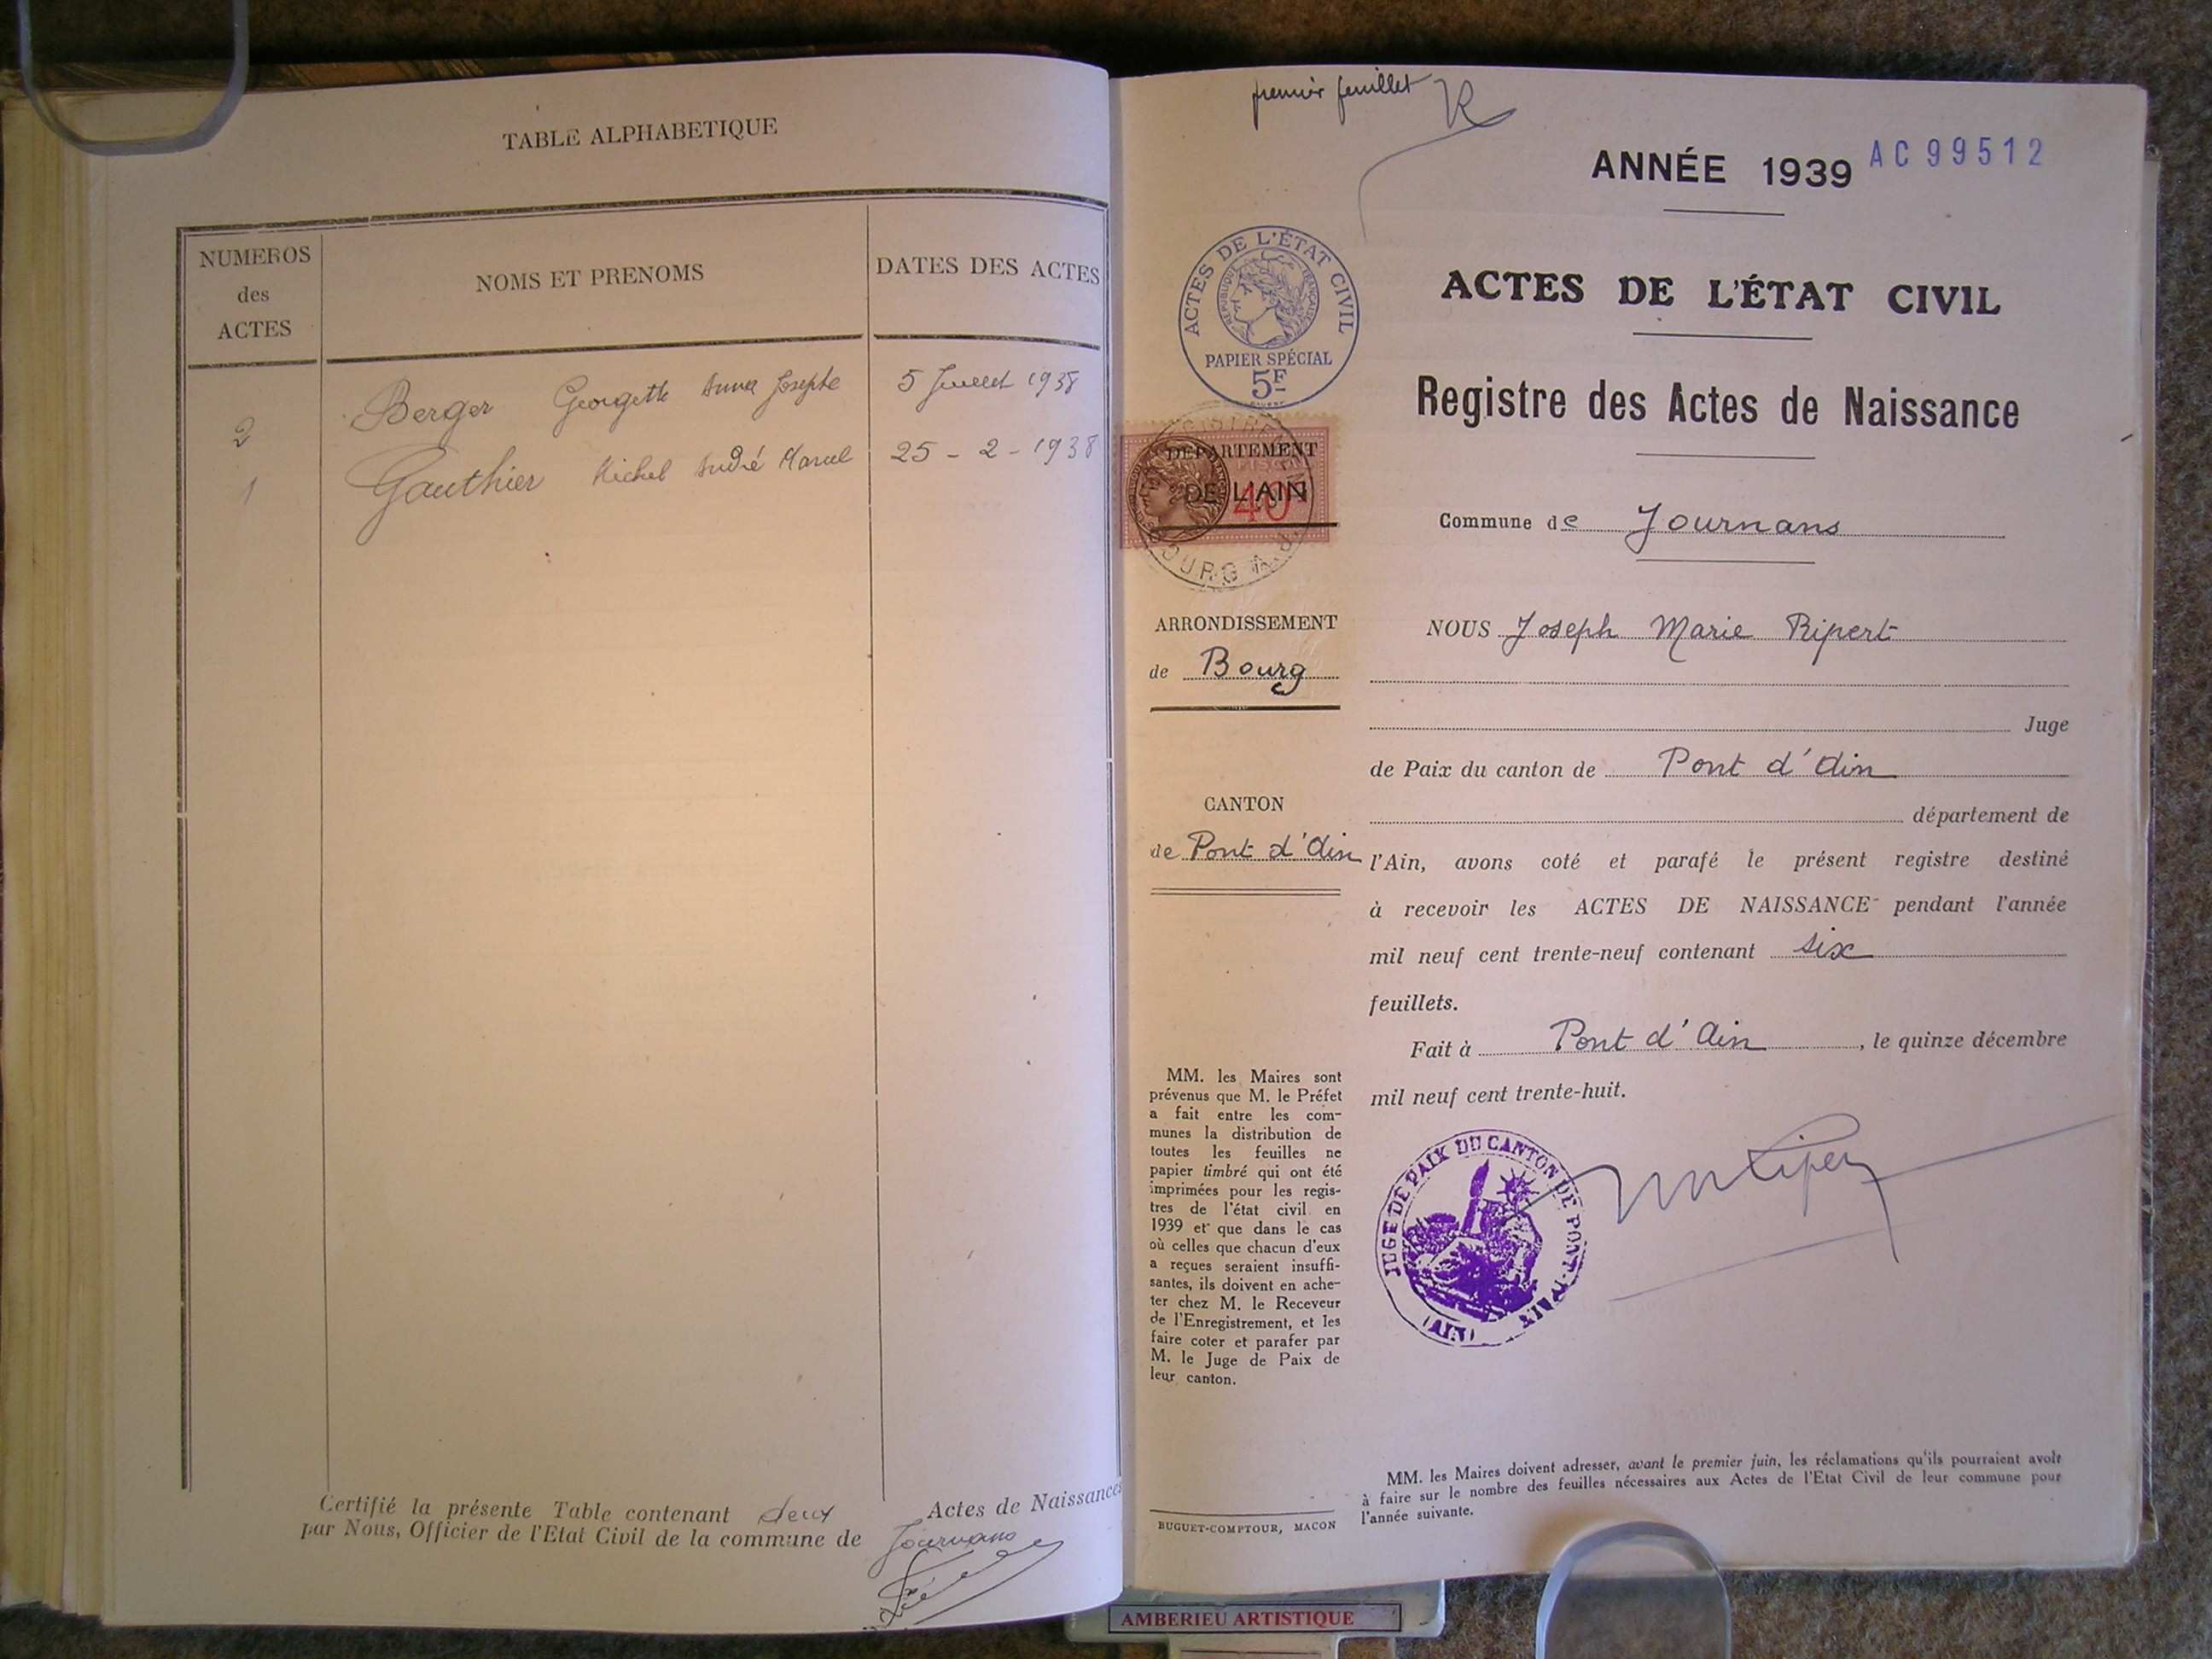 TABLE ALPHABETIQUE
NUMEROS
des
ACTES
NOMS ET PRENOMS
DATES DES ACTES
2 Berger Georgette Anna Josephe 5 Juillet 1938
1 Gauthier Michel André Marcel 25 - 2 - 1938
Certifié la présente Table contenant deux Actes de Naissances
par Nous, Officier de l'Etat Civil de la commune de Journans
premier feuillet
ANNÉE 1939 AC 99512
ACTES DE L'ÉTAT CIVIL
RÉPUBLIQUE FRANÇAISE
PAPIER SPÉCIAL
5F
ACTES DE L'ÉTAT CIVIL
Registre des Actes de Naissance
DÉPARTEMENT
DE L'AIN
40
BOURG
Commune de Journans
ARRONDISSEMENT
de Bourg
CANTON
de Pont d'Ain
NOUS Joseph Marie Ripert
Juge
de Paix du canton de Pont d'Ain
département de
l'Ain, avons coté et parafé le présent registre destiné
à recevoir les ACTES DE NAISSANCE pendant l'année
mil neuf cent trente-neuf contenant six
feuillets.
Fait à Pont d'Ain, le quinze décembre
mil neuf cent trente-huit.
JUGE DE PAIX DU CANTON DE PONT-D'AIN
(AIN)
MM. les Maires sont
prévenus que M. le Préfet
a fait entre les com-
munes la distribution de
toutes les feuilles ne
papier timbré qui ont été
imprimées pour les regis-
tres de l'état civil en
1939 et que dans le cas
où celles que chacun d'eux
a reçues seraient insuffi-
santes, ils doivent en ache-
ter chez M. le Receveur
de l'Enregistrement, et les
faire coter et parafer par
M. le Juge de Paix de
leur canton.
BUGUET-COMPTOUR, MACON
MM. les Maires doivent adresser, avant le premier juin, les réclamations qu'ils pourraient avoir
à faire sur le nombre des feuilles nécessaires aux Actes de l'Etat Civil de leur commune pour
l'année suivante.
AMBERIEU ARTISTIQUE